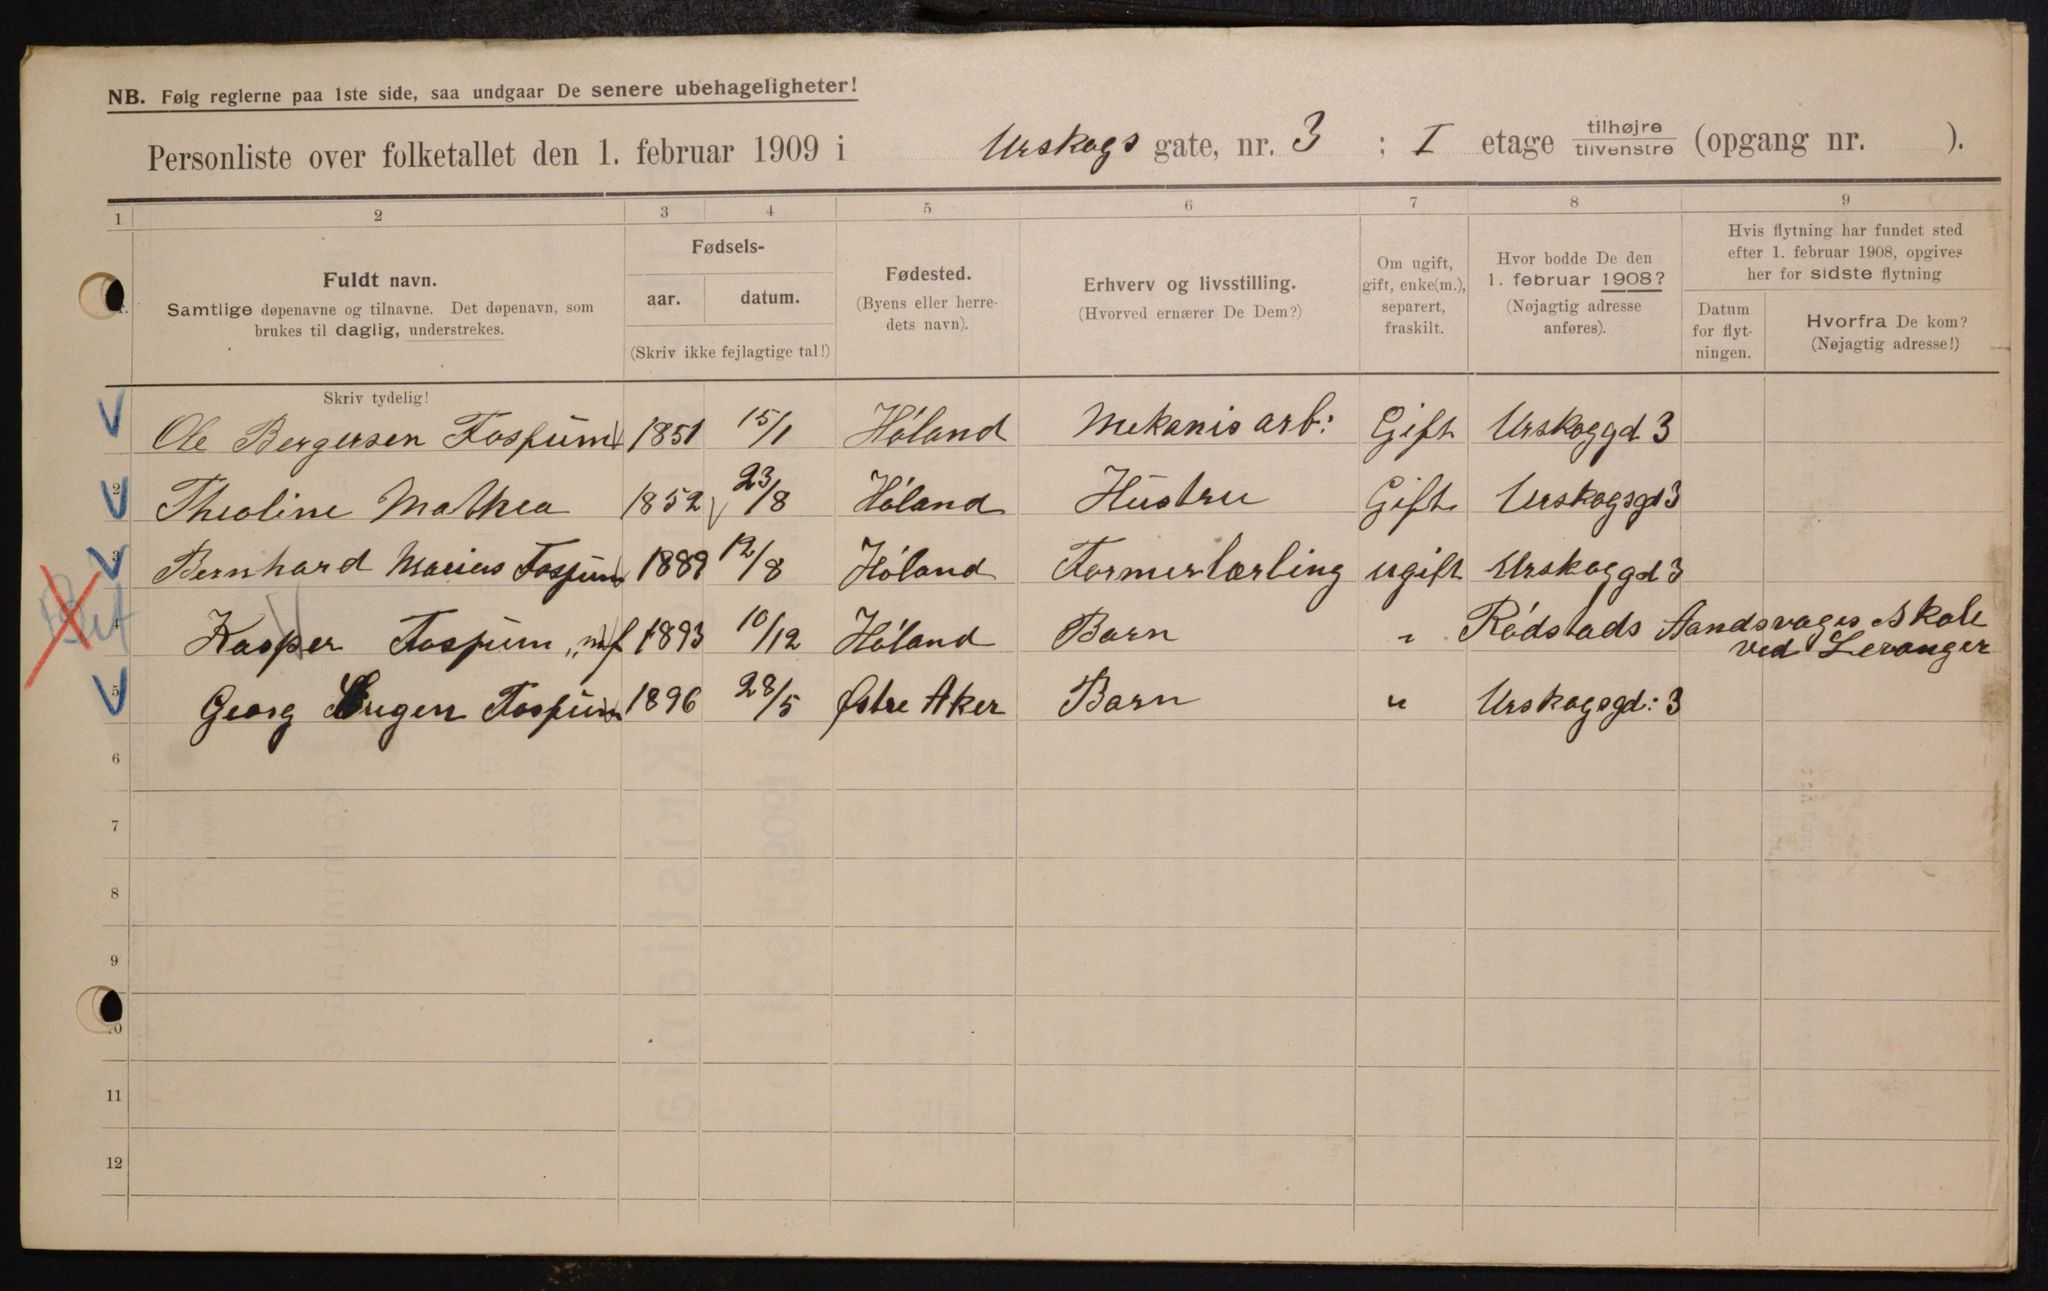 NB. Følg reglerne paa 1ste side, saa undgaar De senere ubehageligheter!
Personliste over folketallet den 1. februar 1909 i Urskogs gate, nr. 3 ; I etage tilhøjre tilvenstre (opgang nr. ).
1 2 3 4 5 6 7 8 9
Fuldt navn.
Samtlige døpenavne og tilnavne. Det døpenavn, som
brukes til daglig, understrekes.
Skriv tydelig!
Fødsels-
aar. datum.
(Skriv ikke fejlagtige tal!)
Fødested.
(Byens eller herre-
dets navn).
Erhverv og livsstilling.
(Hvorved ernærer De Dem?)
Om ugift,
gift, enke(m.),
separert,
fraskilt.
Hvor bodde De den
1. februar 1908?
(Nøjagtig adresse
anføres).
Hvis flytning har fundet sted
efter 1. februar 1908, opgives
her for sidste flytning
Datum
for flyt-
ningen.
Hvorfra De kom?
(Nøjagtig adresse!)
Ole Bergersen Fospum 1851 15/1 Høland Mekanis arb: Gift Urskoggd 3
2 Theoline Mathea 1852 23/8 Høland Hustru Gift Urskogsgd 3
3 Bernhard Marius Fospum 1889 12/8 Høland Formerlærling ugift Urskoggd 3
4 Kasper Fospum 1893 10/12 Høland Barn " Rödstads Aandsvages Skole
ved Levanger
5 Georg Eugen Fospum 1896 28/5 Østre Aker Barn " Urskogsgd: 3
6
7
8
9
10
11
12